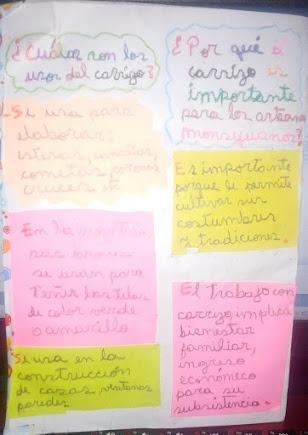 ¿Cuáles son los
usos del carrizo?
Se usa para
elaborar:
esteras, canastas,
cometas
cruces etc
En la
sus
se usan para
Teñir las telas
de color verde
o amarillo
Se usa en la
construcción
de cazas, ventanas
paredes
¿Por qué el
carrizo es
importante
para los artesanos
monsefuanos?
Es importante
porque le permite
cultivar sus
costumbres
y tradiciones.
El Trabajo con
carrizo, implica
bienestar
familiar,
ingreso
económeco
para su
subsistencia.